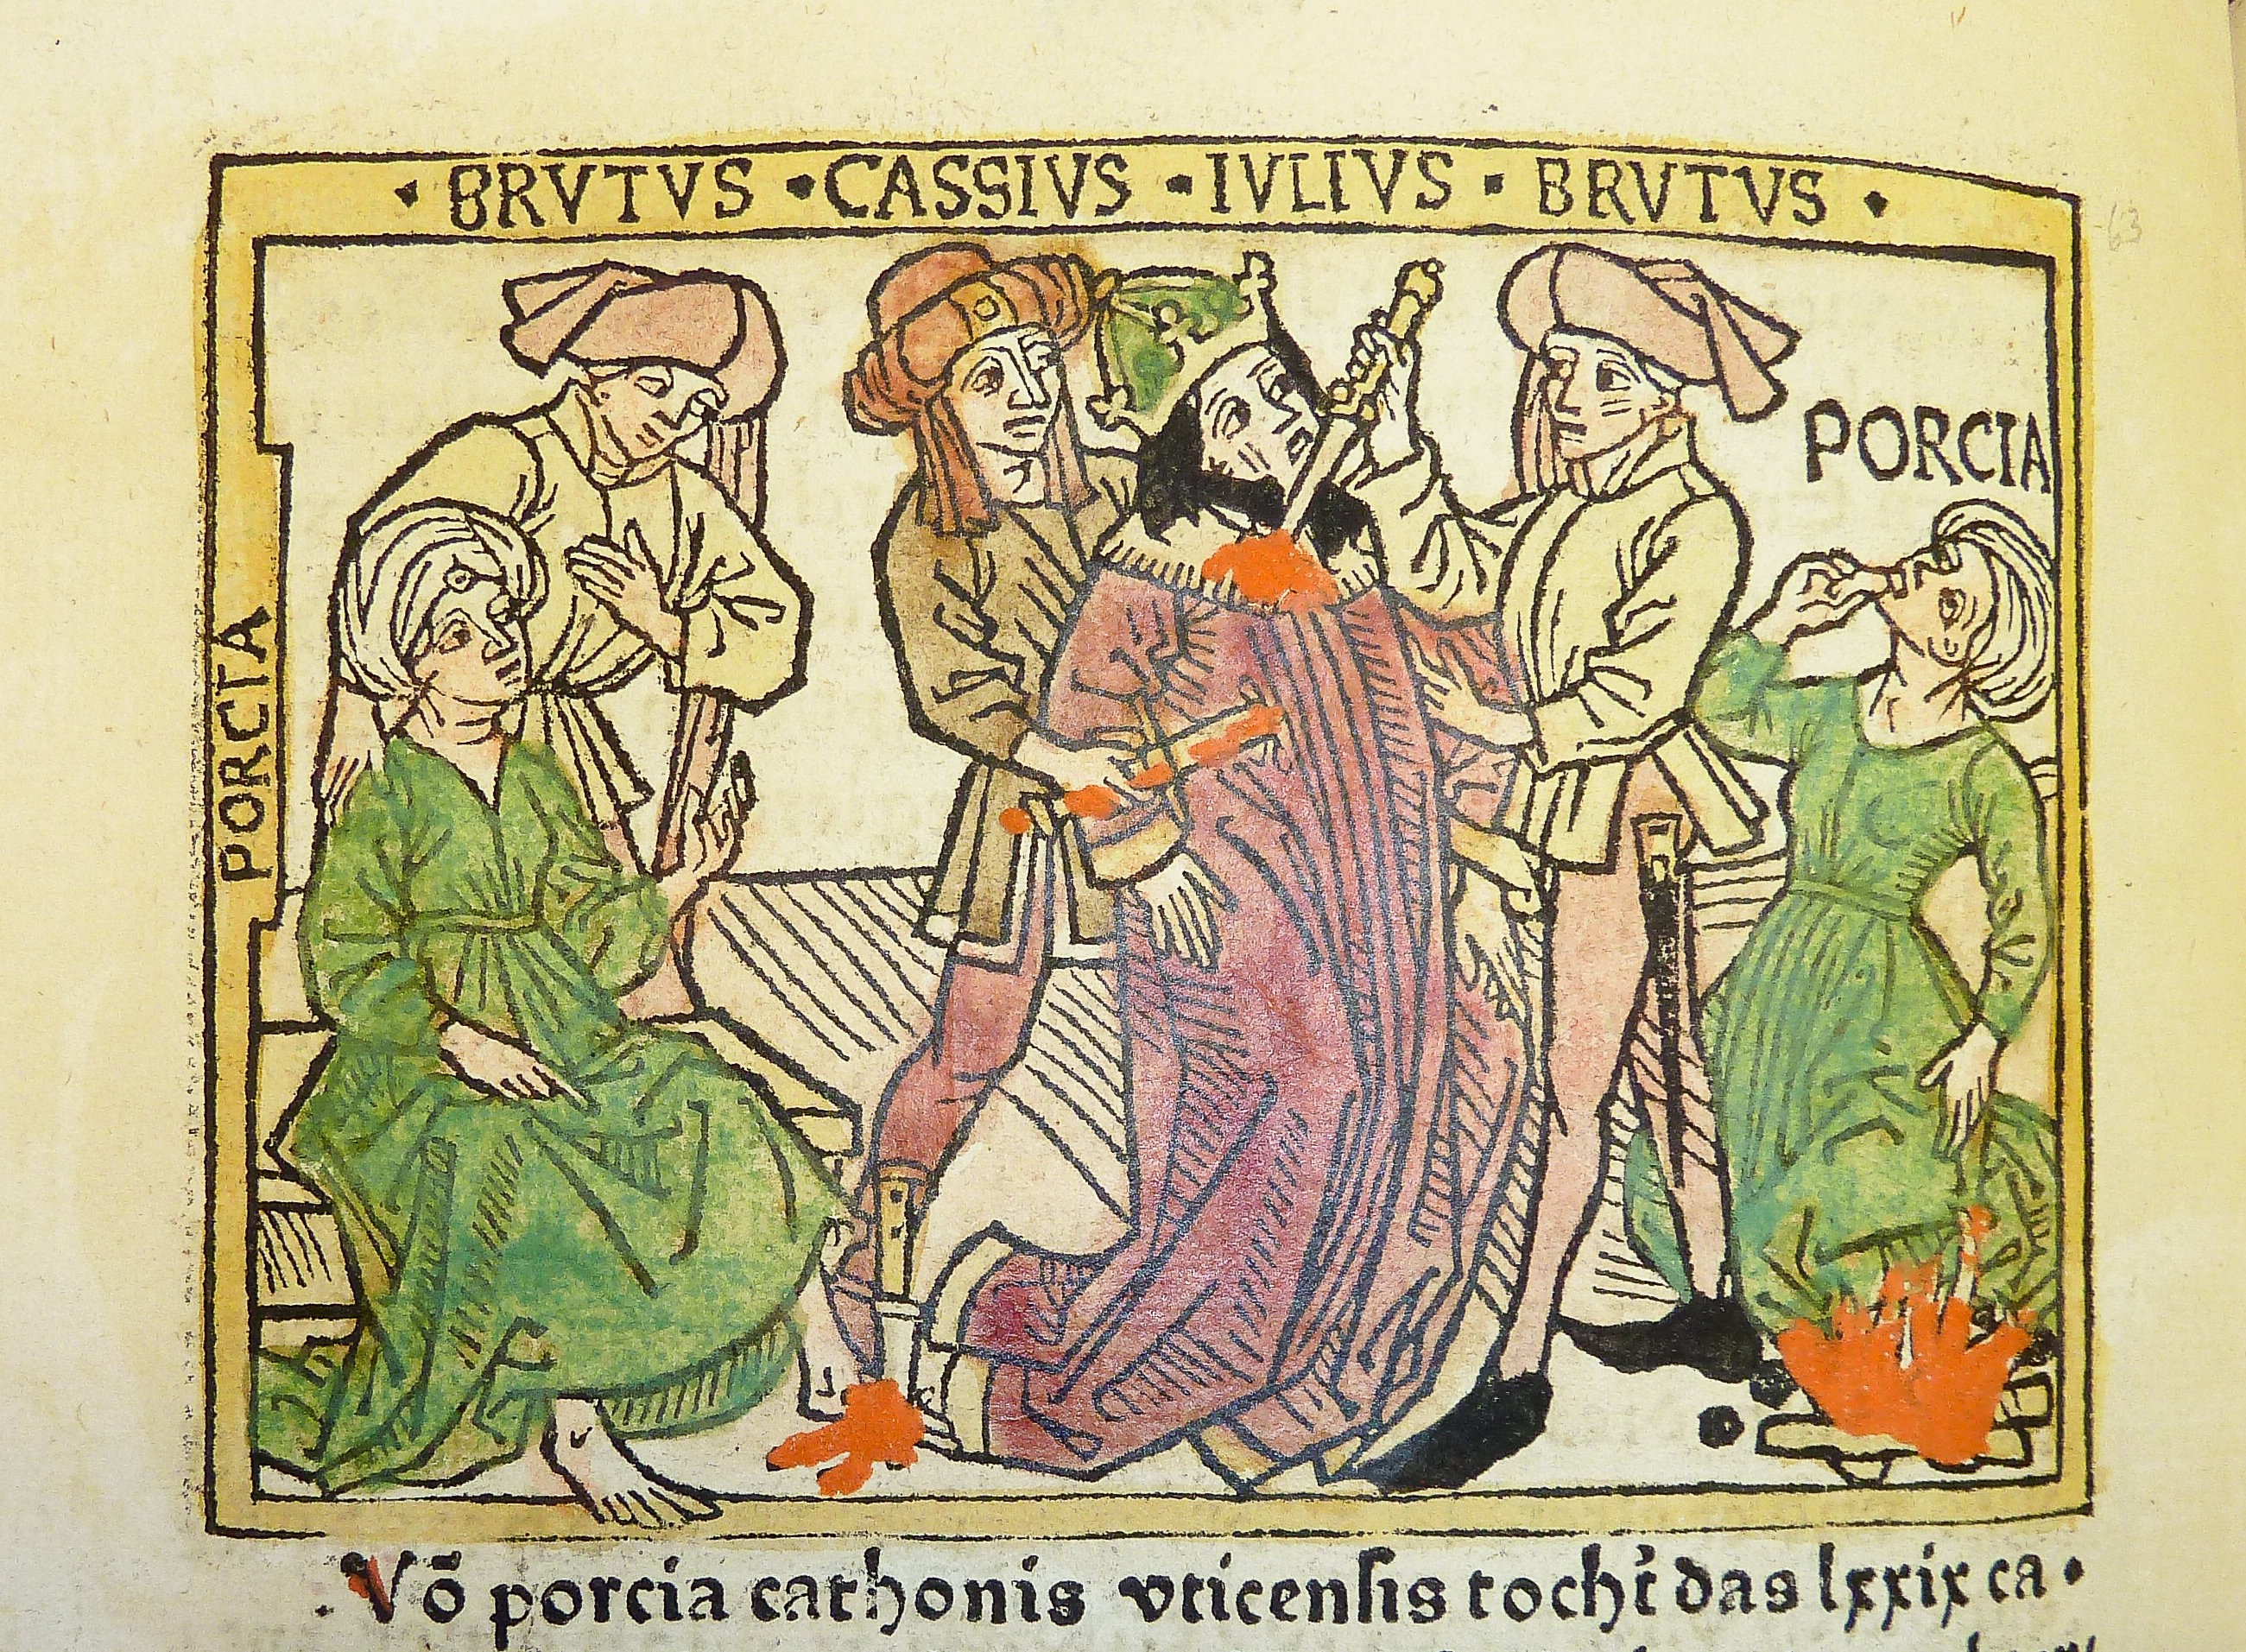 · BRVTVS · CASSIVS · IVLIVS · BRVTVS ·
63
PORCIA
PORCIA
Võ porcia cathonis vticensis tocht̄ das lxxix ca·